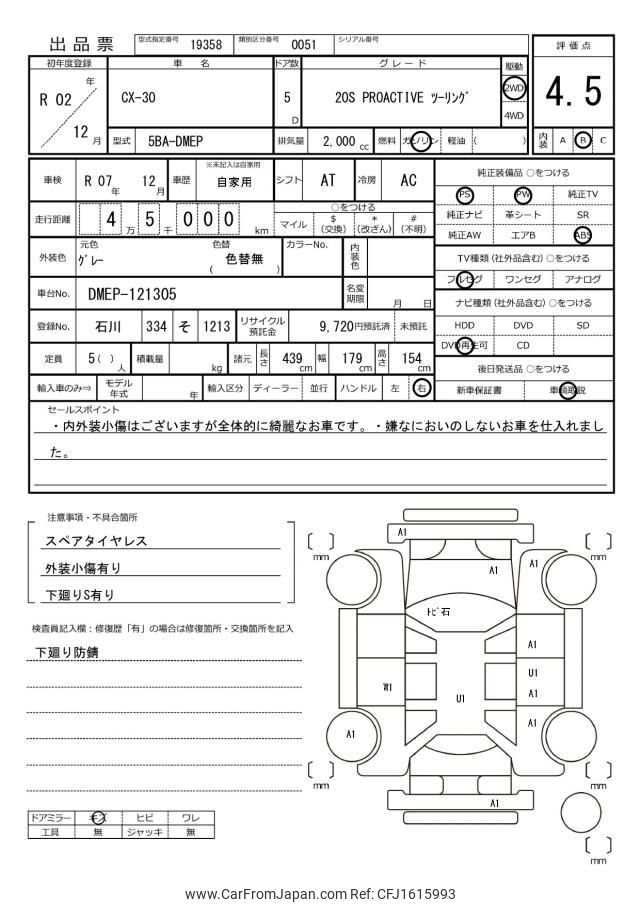 出品票 型式指定番号 19358 類別区分番号 0051 シリアル番号
評価点
4.5
内装 A B C
初年度登録 車名 ドア数 グレード 駆動
R 02 年 12 月
CX-30 5 D 20S PROACTIVE ツーリング 2WD 4WD
型式 5BA-DMEP 排気量 2,000 cc 燃料 ガソリン 軽油 ( )
車検 R 07 年 12 月 車歴 ※未記入は自家用 自家用 シフト AT 冷房 AC
走行距離 4 万 5 千 0 0 0 km
○をつける
マイル $ (交換) * (改ざん) # (不明)
外装色 元色 グレー 色替 ( 色替無 ) カラーNo. 内装色
車台No. DMEP-121305 名変期限 月 日
登録No. 石川 334 そ 1213 リサイクル預託金 9,720円預託済 未預託
定員 5( ) 人 積載量 kg 諸元 長さ 439 cm 幅 179 cm 高さ 154 cm
輸入車のみ⇒ モデル年式 年 輸入区分 ディーラー 並行 ハンドル 左 右
純正装備品 ○をつける
PS PW 純正TV
純正ナビ 革シート SR
純正AW エアB ABS
TV種類(社外品含む)○をつける
フルセグ ワンセグ アナログ
ナビ種類(社外品含む)○をつける
HDD DVD SD
DVD再生可 CD
後日発送品 ○をつける
新車保証書 車輌取説
セールスポイント
・内外装小傷はございますが全体的に綺麗なお車です。・嫌なにおいのしないお車を仕入れまし
た。
注意事項・不具合箇所
スペアタイヤレス
外装小傷有り
下廻りS有り
検査員記入欄：修復歴「有」の場合は修復箇所・交換箇所を記入
下廻り防錆
ドアミラー キズ ヒビ ワレ
工具 無 ジャッキ 無
A1
mm mm
A1 A1
トビ石
A1
U1
A1
U1
A1 A1
mm mm
A1
mm
www.CarFromJapan.com Ref: CFJ1615993